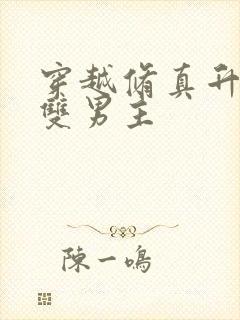 穿越脩真升
雙男主
陳一鳴